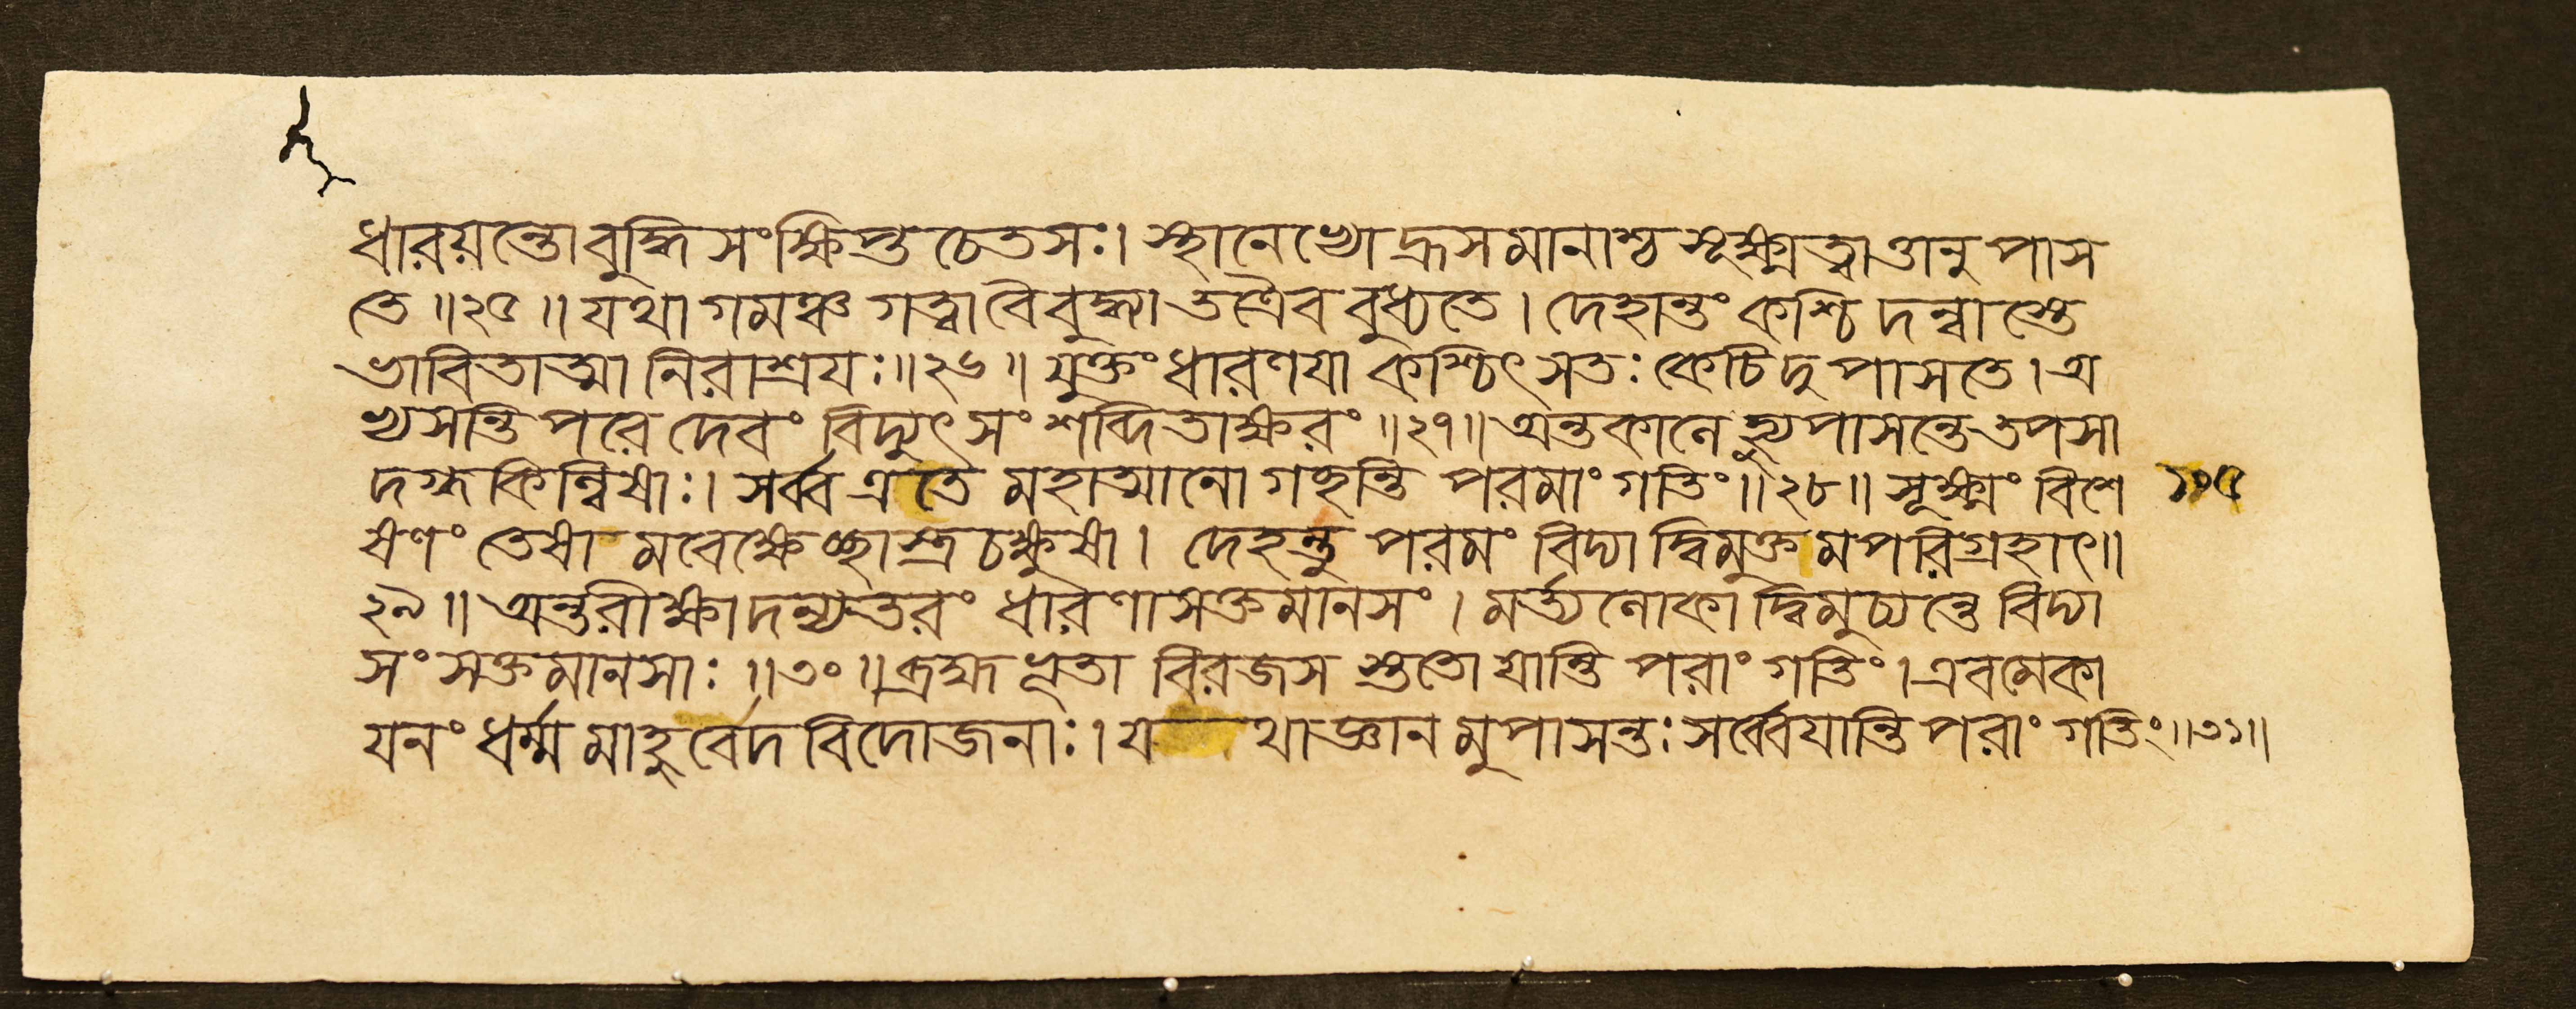 ধারয়ন্তো বুদ্ধি সংক্ষিপ্ত চেতসঃ। স্থানেষ্বেষাদ্ধ্রসমানাশ্চ সূক্ষ্মত্বাত্তানুপাস
তে ॥২৫॥ যথাগমঞ্চ গত্বা বৈ বুদ্ধ্যা তত্রৈব বুধ্যতে। দেহান্তং কশ্চিদন্বাস্তে
ভাবিতাত্মা নিরাশ্রযঃ॥২৬॥ যুক্তং ধারণযা কশ্চিৎ সতঃ কেচিদুপাসতে। অ
ভ্যসন্তি পরে দেবং বিদ্যুৎ সংশব্দিতাক্ষরং ॥২৭॥ অন্তকালে হ্যুপাসন্তে তপসা
দগ্ধকিল্বিষাঃ। সর্ব্ব এতে মহাত্মানো গচ্ছন্তি পরমাং গতিং॥২৮॥ সূক্ষ্মং বিশে
ষণং তেষা মবেক্ষেচ্ছাস্ত্র চক্ষুষা। দেহন্তু পরমং বিদ্যাদ্বিমুক্তমপরিগ্রহাৎ॥
২৯॥ অন্তরীক্ষাদন্যতরং ধারণাসক্তমানসং। মর্ত্যলোকাদ্বিমুচ্যন্তে বিদ্যা
সংসক্তমানসাঃ ॥৩০॥ ব্রহ্মভূতা বিরজস স্ততো যান্তি পরাং গতিং। এবমেকা
যনং ধর্ম্মমাহুর্বেদবিদো জনাঃ। য থাজ্ঞান মুপাসন্তঃ সর্ব্বেযান্তি পরাং গতিং॥৩১॥
১০৫